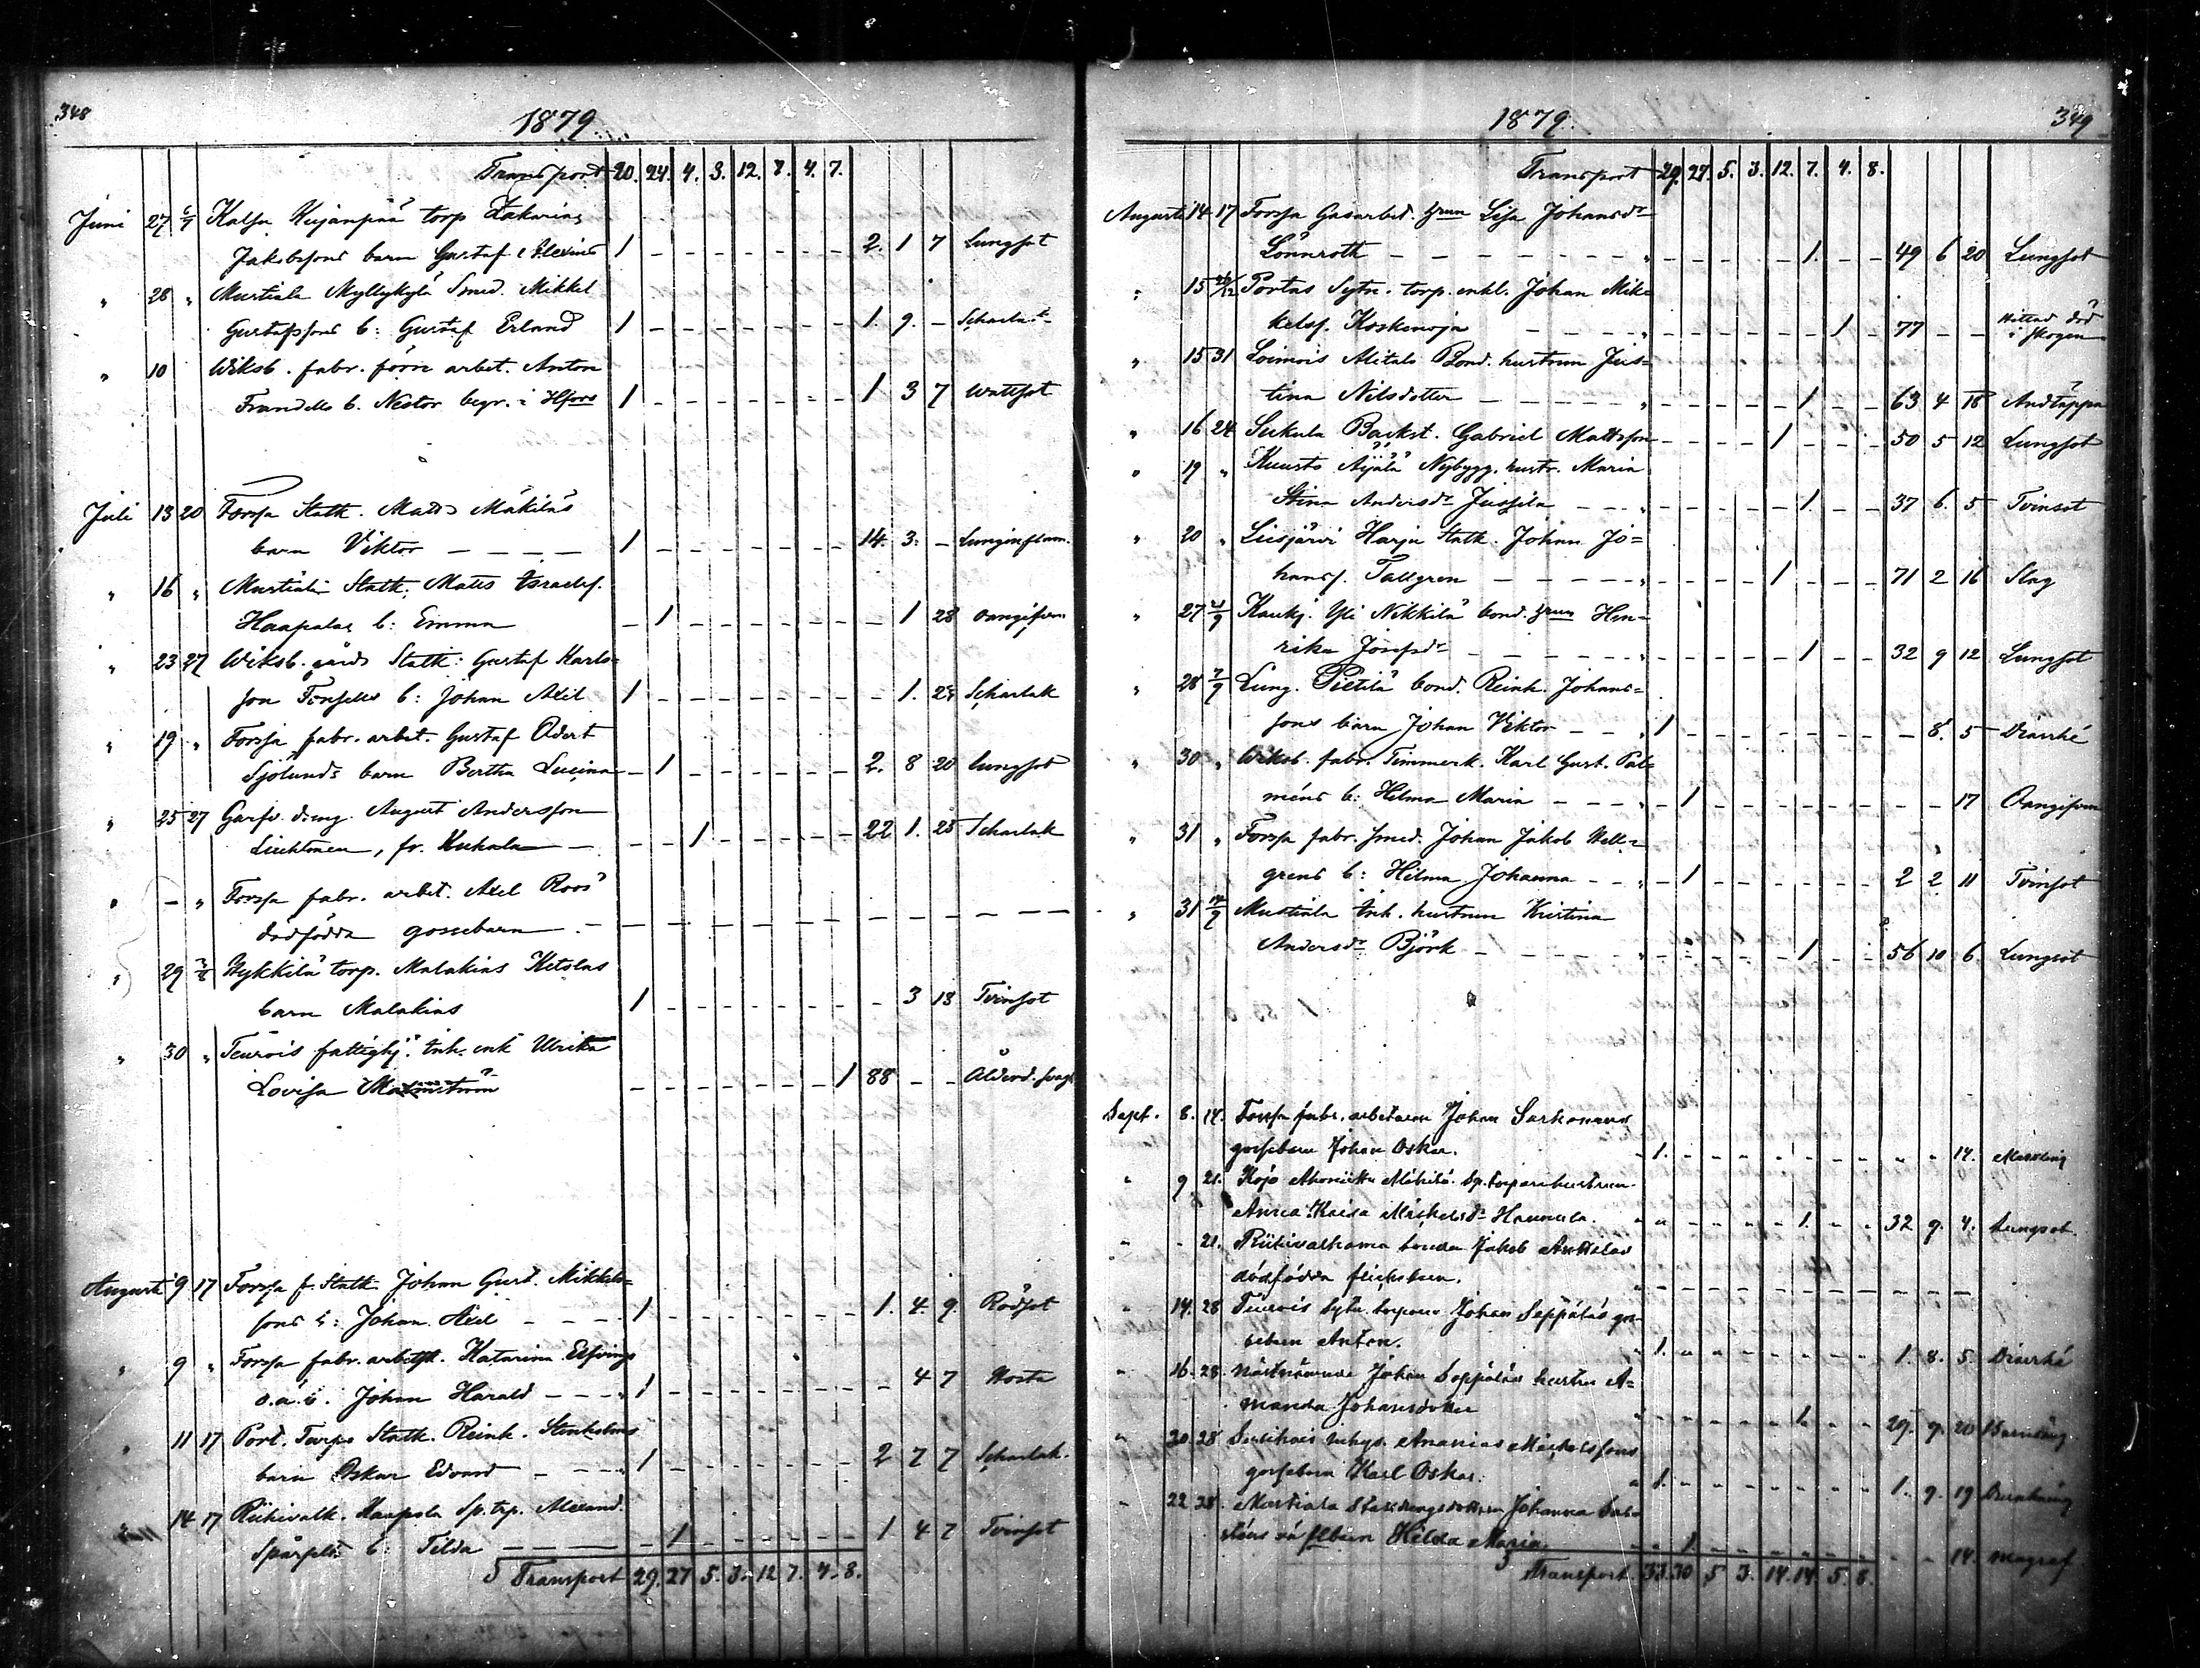 348
1879
Transport 20. 24. 4. 3. 12. 7. 4. 7.
Juni 27 6/7 Kalsu Kujanpää torp Zakarias
Jakobssons barn Gustaf Alexius 1 2. 1 7 Lungsot
" 28 " Mustiala Myllykylä Smed. Mikkel
Gustafssons b: Gustaf Erland 1 1. 9. –
" 10 Wiksb. fabr. förre arbet. Anton
Frandells b. Nestor begr. i Hfors 1 1 3 7 Wattsot
Juli 13 20 Forssa Statk. Matts Mäkiläs
barn Viktor 1 14. 3. – Lunginflam.
" 16 " Mustiala Statk. Matts Israelsf.
Haapalas b: Emma – 1 – 1 28
" 23 27 Wiksb. gårds Statk: Gustaf Karls=
son Forsells b: Johan Axel 1 – 1. Scharlak
" 19 " Forssa fabr. arbet. Gustaf Odert
Sjölunds barn Bertha Lucina – 1 2. 8 20 Lungsot
" 25 27 Garfv. dreng. August Andersson
fr. Kuhala – – – 1 22 1. 25 Scharlak
" – " Forssa fabr. arbet. Axel Roos'
dödfödda gossebarn
" 29 Nykkilä torp. Malakias Ketolas
barn Malakias 1 – 3 13 Tvinsot
" 30 " Teurois fattighj. inh. enk Ulrika
Lovisa Malmström 1 88 – – Ålderd. svagh
Augusti 9 17 Forssa f. Statk Johan Gust. Mikkels=
sons b: Johan Axel 1 1. 4. 9. Rödsot
" 9 " Forssa fabr. arbetsk. Katarina Elfvings
o.ä. b. Johan Harald 1 – 4 7 Hosta
" 11 17 Port. Turpo Statk. Reink. Stenholms
barn Oskar Edvard 1 2 7 7 Scharlak.
" 14 17 Riihivalk. Haapola Sp. trp. Alexand.
b: Tilda – 1 1 4 7 Tvinsot
Transport 29. 27 5. 3. 12 7. 4. 8.
1879.
349
Transport 29. 27. 5. 3. 12. 7. 4. 8.
Augusti 14 17 Forssa Gasarbet. hrun Lisa Johansdr
Lönnroth 1 49 6 20 Lungsot
" 15 Portas Sytn. torp. enkl. Johan Mik=
kelsf. Koskenoja 1 77 – – Hittad död
i skogen
" 15 31 Loimois Alitalo Bond. hustrun Jus=
tina Nilsdotter 1 63 4 18 Andtäppa
" 16 24 Sukula Backst. Gabriel Mattsson 1 50 5 12 Lungsot
" 19 " Kuusto Äijälä Nybygg. hustr. Maria
Stina Andersdr Jussila 1 37 6. 5 Tvinsot
" 20 " Liesjärvi Harju Statk. Johan Jo=
hansf. Tallgren 1 71 2 16 Slag
" 27 Kaukj. Yli Nikkilä bond. hrun Hen=
rika Josefsdr 1 32 9 12 Lungsot
" 28 7/9 Lung. Pietilä bond. Reink. Johans=
sons barn Johan Viktor 1 – 8. 5 Diarrhé
" 30 " Wiksb. fabr. Timmerk. Karl Gust. Pal=
méns b: Hilma Maria – 1 – – 17
" 31 " Forssa fabr. smed. Johan Jakob Hell=
grens b: Hilma Johanna – 1 2 2 11 Tvinsot
" 31 14/9 Mustiala Inh. hustrun Kristina
Andersdr Björk 1 56 10 6 Lungsot
Sept. 8. 14. Forssa fabr. arbetaren Johan
gossebarn Johan Oskar. 1. – – 14.
" 9 21. Kojo Ahoniitty Mäkilä. Sp. torparehustrun
Anna Kaisa Mickelsdr Hannula. 1. 32 9. 4. Lungsot.
" – 21. Riihivalkama bonden Jakob Anttilas
dödfödda flickebarn.
" 14. 28 Teurois Sytn. torparen Johan Seppäläs gos=
sebarn Anton. 1. 1. 8. 5. Diarrhé
" 16. 28. nästnämnde Johan Seppäläs hustru A=
manda Johansdotter 1. 29. 9. 20
" 20 28 Ananias Mickelssons
gossebarn Karl Oskar. 1. 1. 9. 19
" 22 28. Mustiala Johanna
Hilda Maria. 1 – – 14.
Transport. 33. 30 5 3. 14. 14. 5. 8.